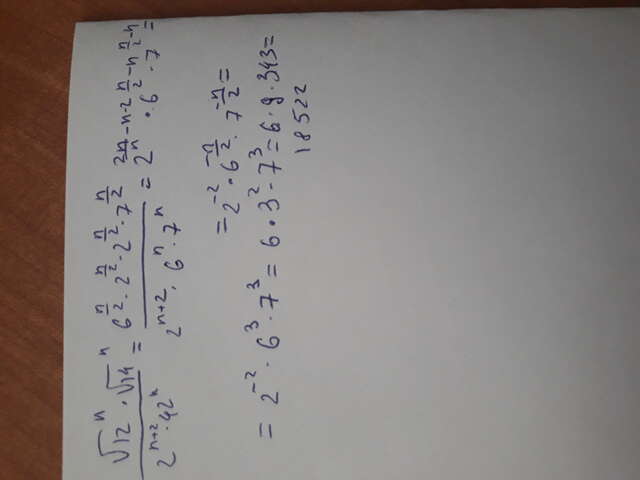 √12ⁿ · √14ⁿ / 2ⁿ⁺² · 42ⁿ = 6^(n/2) · 2^(n/2) · 2^(n/2) · 7^(n/2) / 2ⁿ⁺² · 6ⁿ · 7ⁿ = 2^(2n/n - n - 2) · 6^(n/2 - n) · 7^(n/2 - n) =
= 2⁻² · 6^(-n/2) · 7^(-n/2) =
= 2⁻² · 6³ · 7³ = 6 · 3² · 7³ = 6 · 9 · 343 =
18522